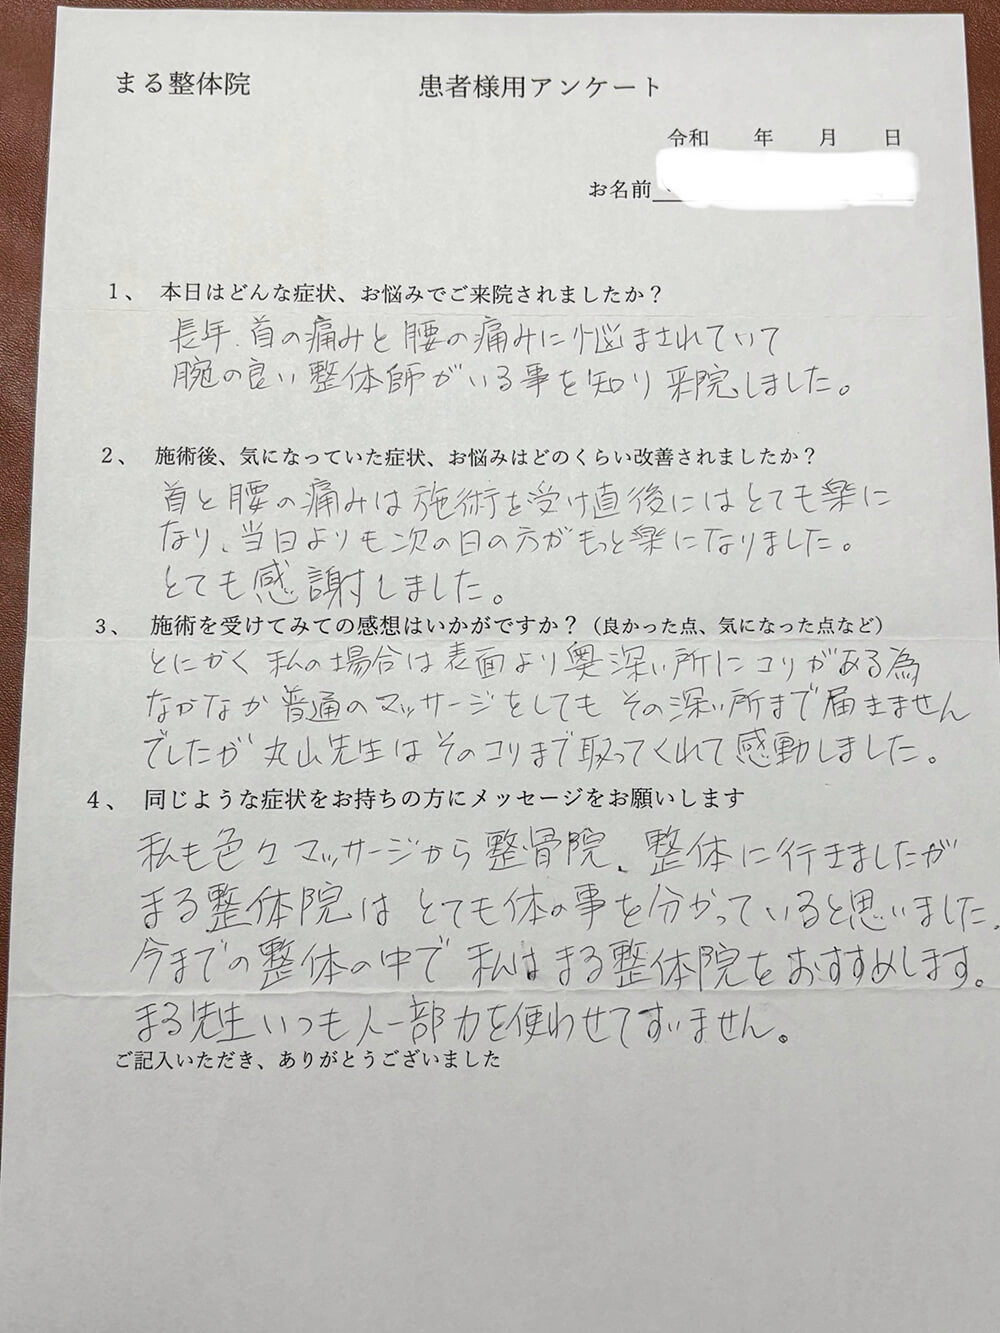 まる整体院 患者様用アンケート
令和 年 月 日
お名前
1、 本日はどんな症状、お悩みでご来院されましたか？
長年、首の痛みと腰の痛みに悩まされていて
腕の良い整体師がいる事を知り来院しました。
2、 施術後、気になっていた症状、お悩みはどのくらい改善されましたか？
首と腰の痛みは施術を受け直後にはとても楽に
なり、当日よりも次の日の方がもっと楽になりました。
とても感謝しました。
3、 施術を受けてみての感想はいかがですか？（良かった点、気になった点など）
とにかく私の場合は表面より奥深い所にコリがある為
なかなか普通のマッサージをしてもその深い所まで届きません
でしたが丸山先生はそのコリまで取ってくれて感動しました。
4、 同じような症状をお持ちの方にメッセージをお願いします
私も色々マッサージから整骨院、整体に行きましたが
まる整体院はとても体の事を分かっていると思いました。
今までの整体の中で私はまる整体院をおすすめします。
まる先生いつも人一部力を使わせてすいません。
ご記入いただき、ありがとうございました